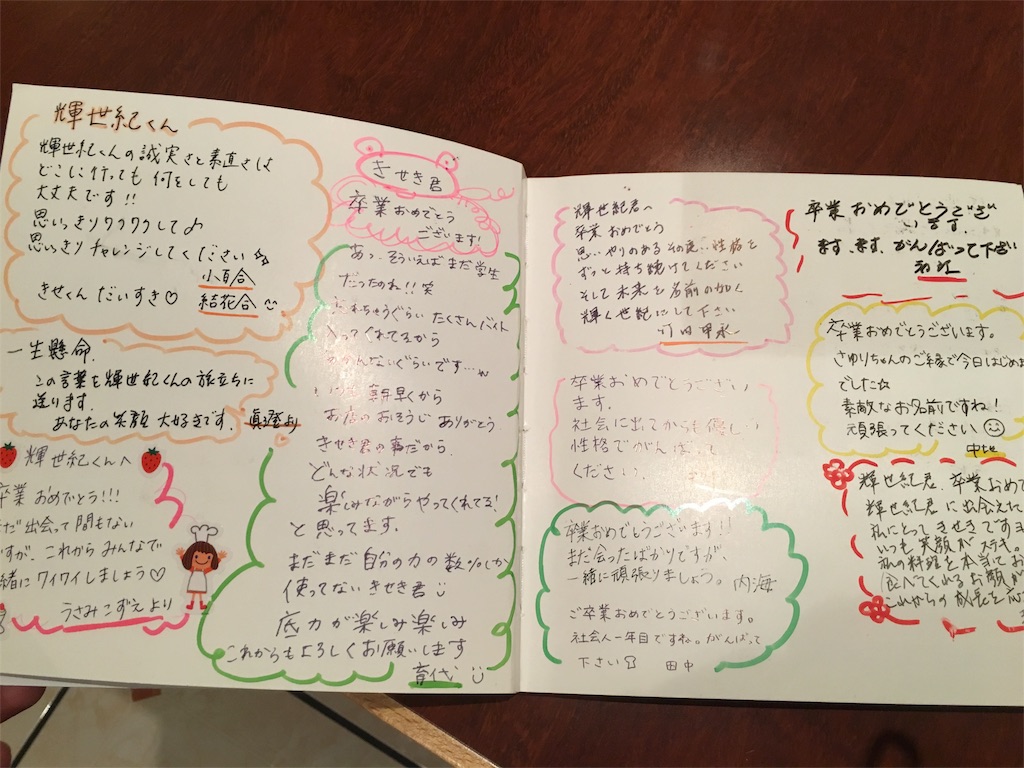 輝世紀くん
輝世紀くんの誠実さと素直さは
どこに行っても何をしても
大丈夫です!!
思いっきりワクワクして♪
思いっきりチャレンジしてください☆
小百合
きせくんだいすき♡ 結花合
一生懸命、
この言葉を輝世紀くんの旅立ちに
送ります。
あなたの笑顔大好きです。真澄より
輝世紀くんへ
卒業おめでとう!!!
まだ出会って間もない
ですが、これからみんなで
一緒にワイワイしましょう♡
うさみこずえより
きせき君
卒業おめでとう
ございます!
あっ、そういえばまだ学生
だったのね!!笑
ぐらいたくさんバイト
入ってくれてるから
わかんないぐらいです…
朝早くから
お店のおそうじありがとう
きせき君の事だから、
どんな状況でも
楽しみながらやってくれてる!
と思ってます。
まだまだ自分の力の数%しか
使ってないきせき君
底力が楽しみ楽しみ
これからもよろしくお願いします
育代
輝世紀君へ
卒業おめでとう
思いやりのあるその良い性格を
ずっと持ち続けてください
そして未来を名前の如く
輝く世紀にして下さい
卒業おめでとうござい
ます。
社会に出てからも優しい
性格でがんばって
ください。
卒業おめでとうございます!!
まだ会ったばかりですが、
一緒に頑張りましょう。内海
ご卒業おめでとうございます。
社会人一年目ですね。がんばって
下さい 田中
卒業おめでとうござ
います
ます、ます、がんばって下さい
卒業おめでとうございます。
さゆりちゃんのご縁で今日はじめま
でした☆
素敵なお名前ですね!
頑張ってください
中地
輝世紀君、卒業おめで
輝世紀君に出会えて
私にとってきせきですョ
いつも笑顔がステキ。
私の料理を本当にお
食べてくれるお顔が
これからの成長を